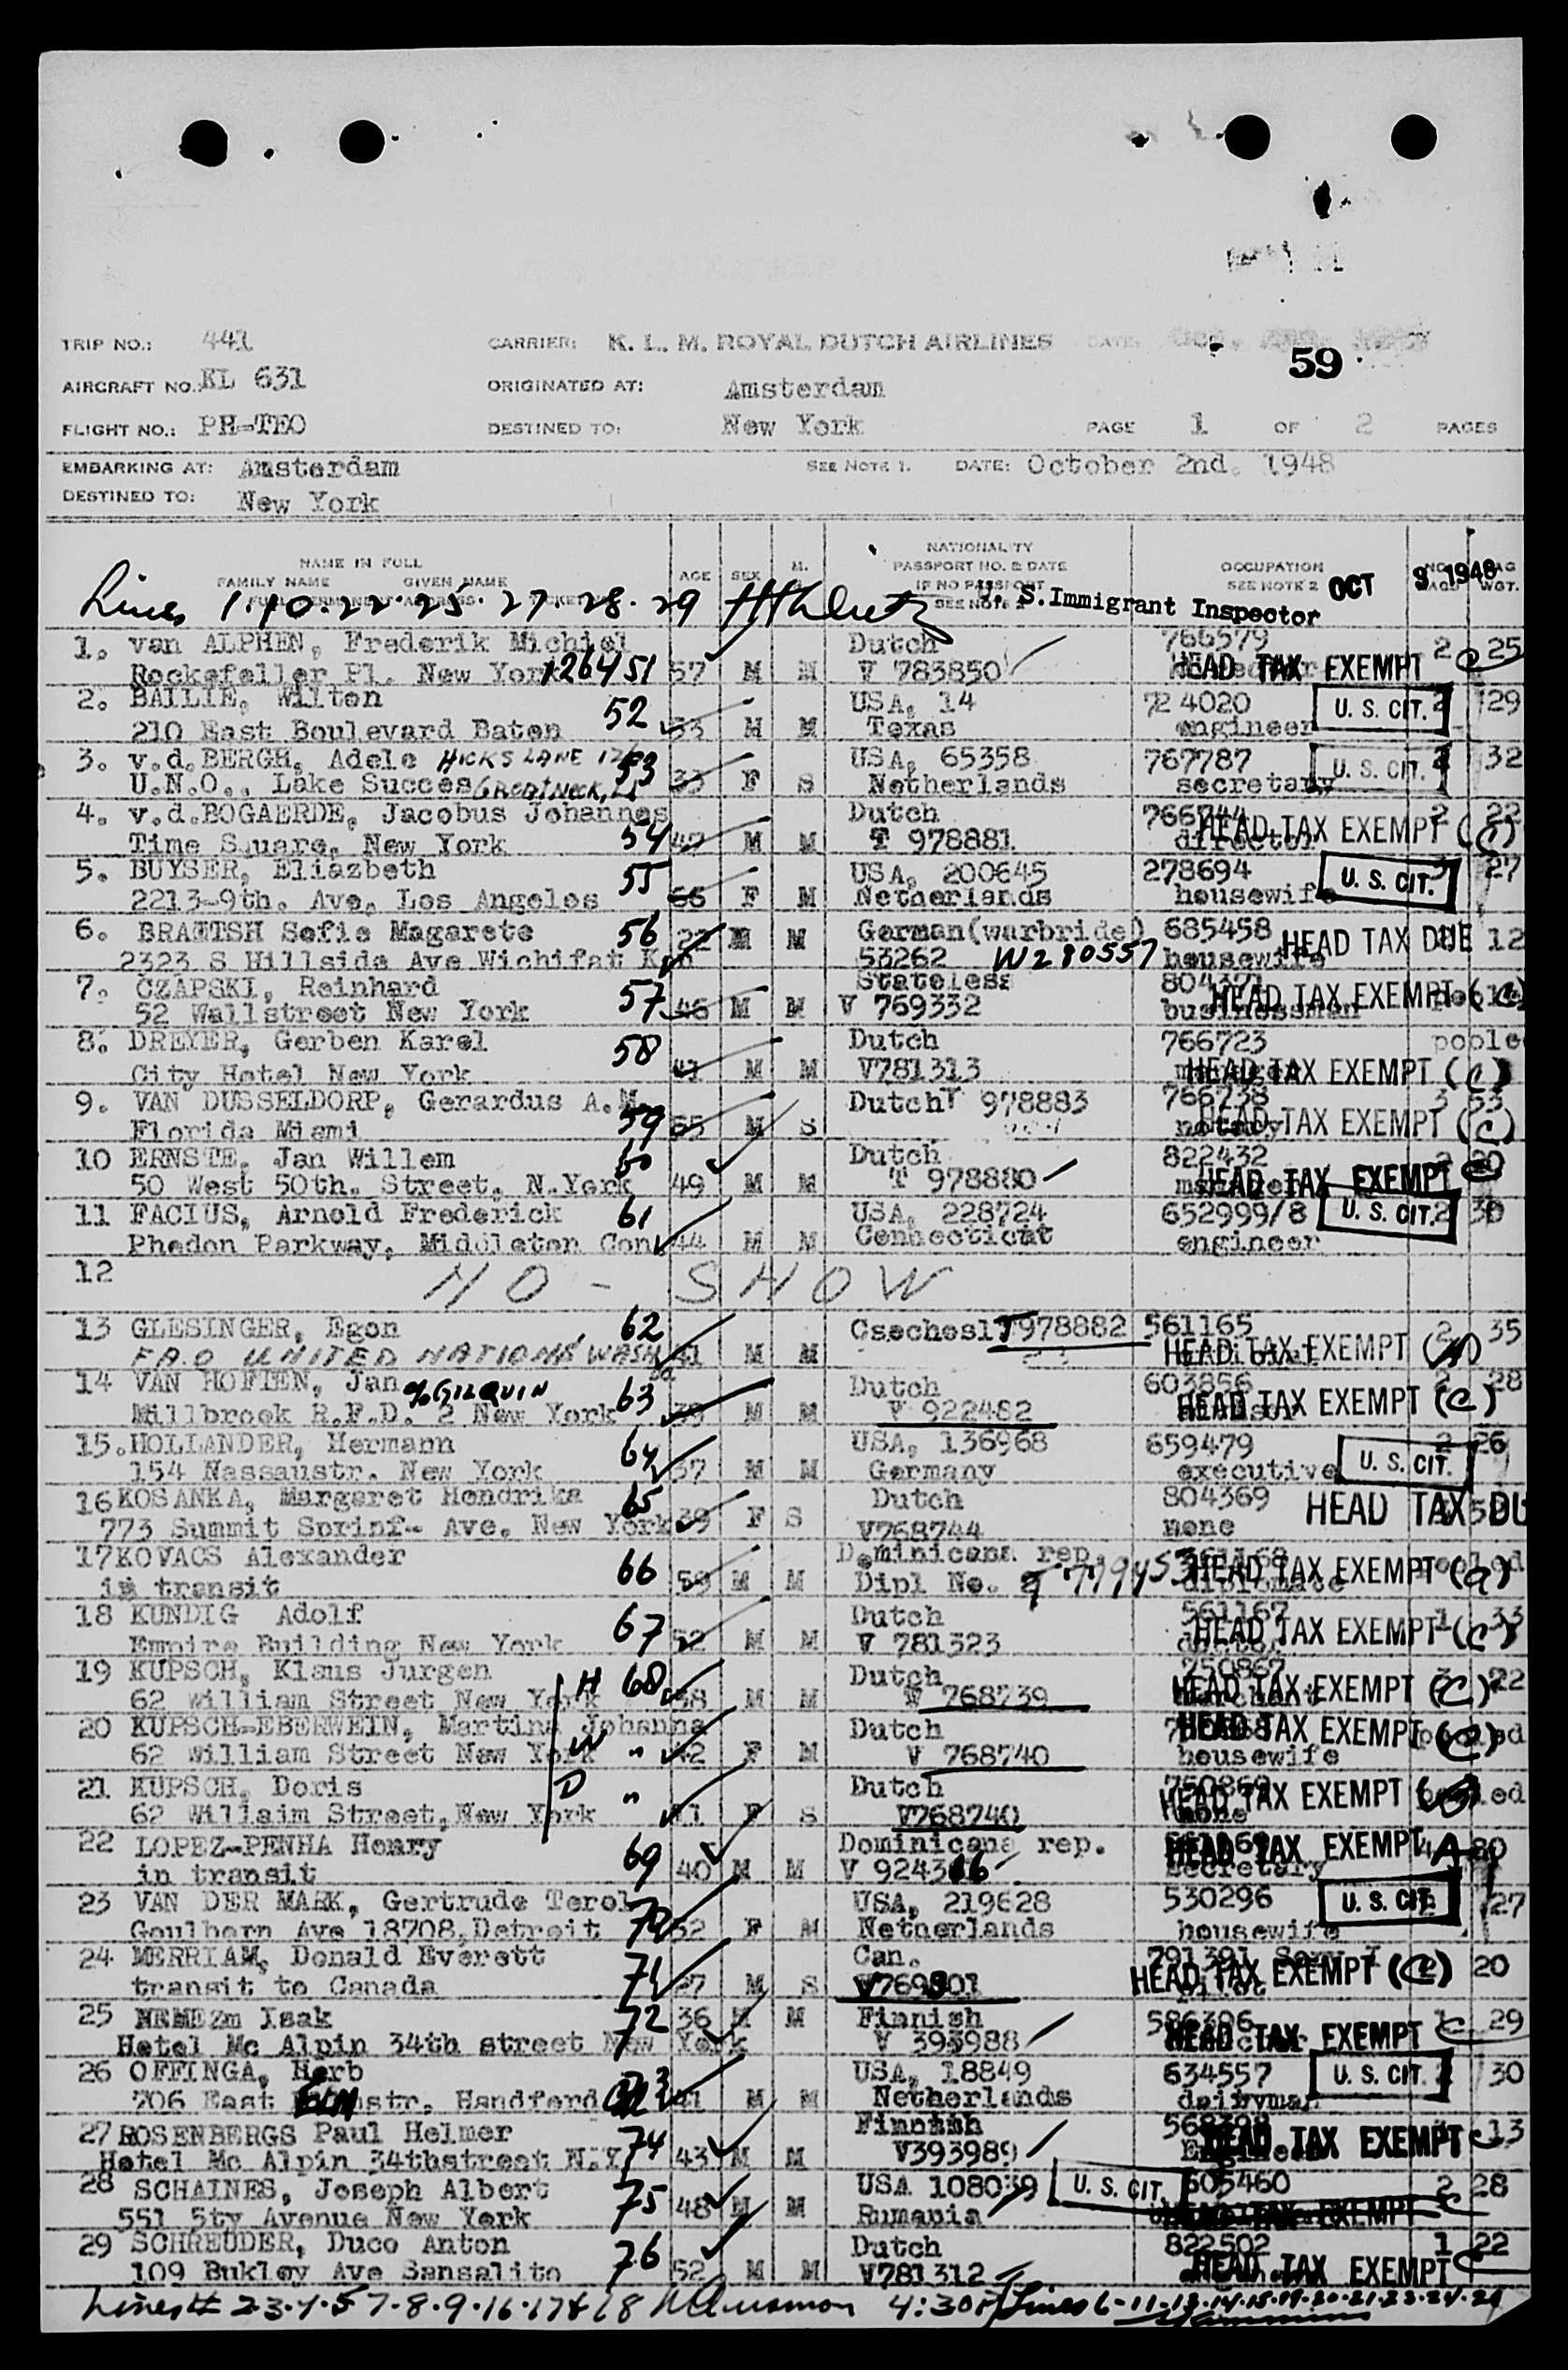 TRIP NO.: 441 CARRIER: K. L. M. ROYAL DUTCH AIRLINES DATE:
59
AIRCRAFT NO. KL 631 ORIGINATED AT: Amsterdam
FLIGHT NO.: PH-TEO DESTINED TO: New York PAGE 1 OF 2 PAGES
EMBARKING AT: Amsterdam SEE NOTE 1. DATE: October 2nd. 1948
DESTINED TO: New York
NAME IN FULL
FAMILY NAME GIVEN NAME
AGE SEX M. NATIONALITY
PASSPORT NO. & DATE
IF NO PASSPORT
SEE NOTE
OCCUPATION
SEE NOTE 2
WGT.
OCT 3 1948
Lines 1.10.22.25.27.28.29
S. Immigrant Inspector
1. van ALPHEN, Frederik Michiel Dutch 766579 2 25
Rockefeller Pl. New York 126451 57 M M V 783850 HEAD TAX EXEMPT c
2. BAILIE, Wilton 52 USA, 14 72 4020 U. S. CIT. 2 29
210 East Boulevard Baton 53 M M Texas engineer
3. v.d.BERGH, Adele HICKS LANE 53 USA, 65358 767787 U. S. CIT. 32
U.N.O., Lake Succes GREAT NECK, 33 F S Netherlands secretary
4. v.d.BOGAERDE, Jacobus Johannes Dutch 766744 2 22
Time Square, New York 54 42 M M T 978881 director HEAD TAX EXEMPT (c)
5. BUYSER, Eliazbeth 55 USA, 200645 278694 U. S. CIT. 27
2213-9th. Ave, Los Angeles 66 F M Netherlands housewife
6. BRAETSH Sofie Magarete 56 22 M M German(warbride) 685458 HEAD TAX DUE 12
2323 S Hillside Ave Wichifat Kan 53262 W280557 housewife
7. CZAPSKI, Reinhard 57 Stateless HEAD TAX EXEMPT (c)
52 Wallstreet New York 46 M M V 769332 businessman
8. DREYER, Gerben Karel 58 Dutch 766723 pooled
City Hotel New York 41 M M V781313 HEAD TAX EXEMPT (c)
9. VAN DUSSELDORP, Gerardus A.M. Dutch T 978883 766738 3 53
Florida Miami 59 55 M S notary HEAD TAX EXEMPT (c)
10 ERNSTE, Jan Willem 60 Dutch 822432 20
50 West 50th. Street, N.York 49 M M T 978880 manager HEAD TAX EXEMPT c
11 FACIUS, Arnold Frederick 61 USA, 228724 652999/8 U. S. CIT. 2 30
Phedon Parkway, Middleton Con 44 M M Connecticut engineer
12 NO - SHOW
13 GLESINGER, Egon 62 Csechosl T978882 561165 2 35
F.A.O UNITED NATIONS WASH 41 M M HEAD TAX EXEMPT (A)
14 VAN HOFTEN, Jan % GILQUIN 63 Dutch 603856 28
Millbrook R.F.D. 2 New York 39 M M V 922482 HEAD TAX EXEMPT (c)
15. HOLLANDER, Hermann 64 USA, 136968 659479 U. S. CIT. 26
154 Nassaustr. New York 37 M M Germany executive
16 KOSANKA, Margaret Hendrika 65 Dutch 804369 HEAD TAX DU
773 Summit Sprinf-- Ave. New York 39 F S V768744 none
17 KOVACS Alexander 66 Dominicana rep.
in transit 59 M M Dipl No. diplomate HEAD TAX EXEMPT (a)
18 KUNDIG Adolf 67 Dutch 561167 33
Empire Building New York 52 M M V 781323 HEAD TAX EXEMPT (c)
19 KUPSCH, Klaus Jurgen H 68 Dutch 750867 22
62 william Street New York 58 M M V 768739 HEAD TAX EXEMPT (c)
20 KUPSCH-EBERWEIN, Martina Johanna W " Dutch HEAD TAX EXEMPT (c) pooled
62 william Street New York 42 F M V 768740 housewife
21 KUPSCH, Doris D " Dutch 750869 HEAD TAX EXEMPT pooled
62 Willaim Street, New York 11 F S V768740 none
22 LOPEZ-PENHA Henry 69 Dominicana rep. HEAD TAX EXEMPT A 80
in transit 40 M M V 924316 secretary
23 VAN DER MARK, Gertrude Terol 70 USA, 219628 530296 U. S. CIT. 27
Goulborn Ave 18708, Detroit 52 F M Netherlands housewife
24 MERRIAM, Donald Everett 71 Can. 791391
transit to Canada 27 M S V769801 pilot HEAD TAX EXEMPT (c) 20
25 NEMEZm Isak 72 36 M M Finnish 586396 1 29
Hotel Mc Alpin 34th street New York V 393988 HEAD TAX EXEMPT c
26 OFFINGA, Herb 73 USA, 18849 634557 U. S. CIT. 30
706 East 6th str. Handford 41 M M Netherlands dairyman
27 ROSENBERGS Paul Helmer 74 Finnish 13
Hotel Mc Alpin 34thstreet N.Y. 43 M M V393989 HEAD TAX EXEMPT c
28 SCHAINES, Joseph Albert 75 USA 108039 U. S. CIT. 605460 2 28
551 5ty Avenue New York 48 M M Rumania HEAD TAX EXEMPT
29 SCHREUDER, Duco Anton 76 Dutch 822502 1 22
109 Bukley Ave Sansalito 52 M M V781312 HEAD TAX EXEMPT c
Lines # 2.3.4.5 7.8.9.16.17 & 18 4:30P Lines 6-11.13.14.15.19.20.21.23.24.26